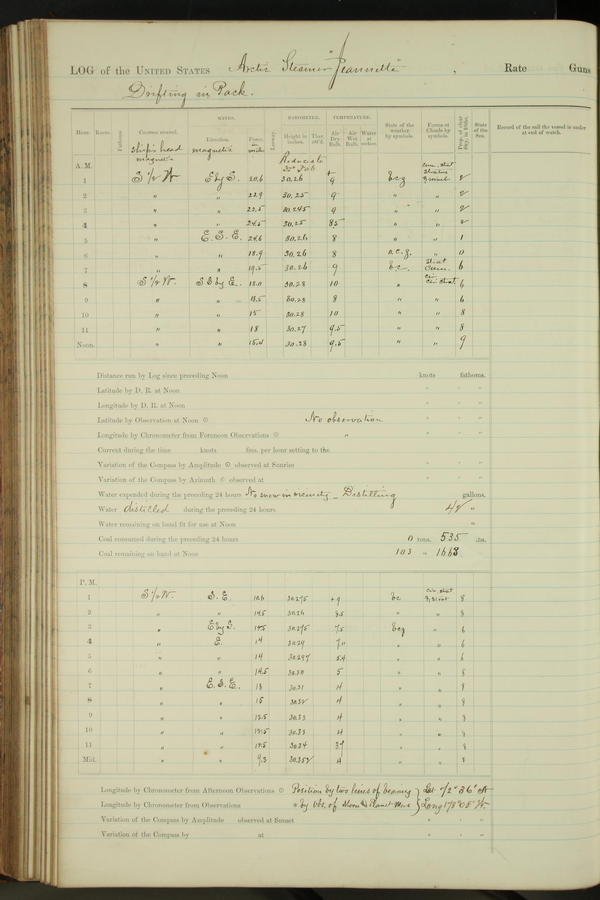 LOG of the UNITED STATES Arctic Steamer "Jeannette", Rate Guns
Drifting in Pack.
WINDS. BAROMETER. TEMPERATURE.
Hour. Knots. Fathoms. Courses steered. Direction. Force. Leeway. Height in inches. Ther. att'd. Air Dry Bulb. Air Wet Bulb. Water at surface. State of the weather by symbols. Forms of Clouds by symbols. State of the Sea. Record of the sail the vessel is under at end of watch.
ship's head magnetic magnetic in miles
A. M.
1 S ½ W E by S. 20.6 30.26 + 9 2
2 " " 22.9 30.25 9 " " 2
3 " " 22.5 30.245 9 " " 2
4 " " 24.5 30.25 8.5 " " 2
5 " E. S. E. 24.6 30.26 8 " " 1
6 " " 18.9 30.26 8 " 0
7 " " 19.5 30.26 9 6
8 S ½ W. S E by E. 18.0 30.28 10 " 6
9 " " 18.5 30.28 8 " " 6
10 " " 15 30.28 10 " " 8
11 " " 18 30.27 9.5 " " 8
Noon. " " 15.4 30.28 9.5 " " 9
Distance run by Log since preceding Noon knots fathoms.
Latitude by D. R. at Noon ° ' "
Longitude by D. R. at Noon ° ' "
Latitude by Observation at Noon ☉ No observation ° ' "
Longitude by Chronometer from Forenoon Observations ☉ " ° ' "
Current during the time knots fms. per hour setting to the
Variation of the Compass by Amplitude ☉ observed at Sunrise ° ' "
Variation of the Compass by Azimuth ☉ observed at ° ' "
Water expended during the preceding 24 hours No snow in vicinity – Distilling gallons.
Water distilled during the preceding 24 hours 42 "
Water remaining on board fit for use at Noon "
Coal consumed during the preceding 24 hours 0 tons. 535 lbs.
Coal remaining on hand at Noon 103 " 1668
P. M.
1 S ½ W. S. E. 10.6 30.275 + 9 bc 8
2 " " 14.5 30.26 8.5 " " 8
3 " E by S. 14.5 30.275 7.5 " 6
4 " E. 14 30.29 7 " " 6
5 " " 14 30.297 5.4 " " 6
6 " " 14.5 30.30 5 " " 8
7 " E. S. E. 18 30.31 4 " " 8
8 " " 15 30.32 4 " " 8
9 " " 12.5 30.33 4 " " 8
10 " " 12.5 30.33 4 " " 8
11 " " 12.5 30.34 " " 8
Mid. " " 9.3 30.352 4 " " 8
Longitude by Chronometer from Afternoon Observations ☉ Position by two lines of bearing } Lat 72° 36' N
Longitude by Chronometer from Observations * by Obs. of Moon & Planet Mars } Long 178° 08' W
Variation of the Compass by Amplitude observed at Sunset ° ' "
Variation of the Compass by at ° ' "